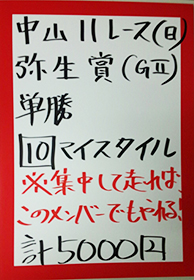 中山11レース(日)
弥生賞(GⅡ)
単勝
10 マイスタイル
※集中して走れば、
このメンバーでもやれる!
計5000円